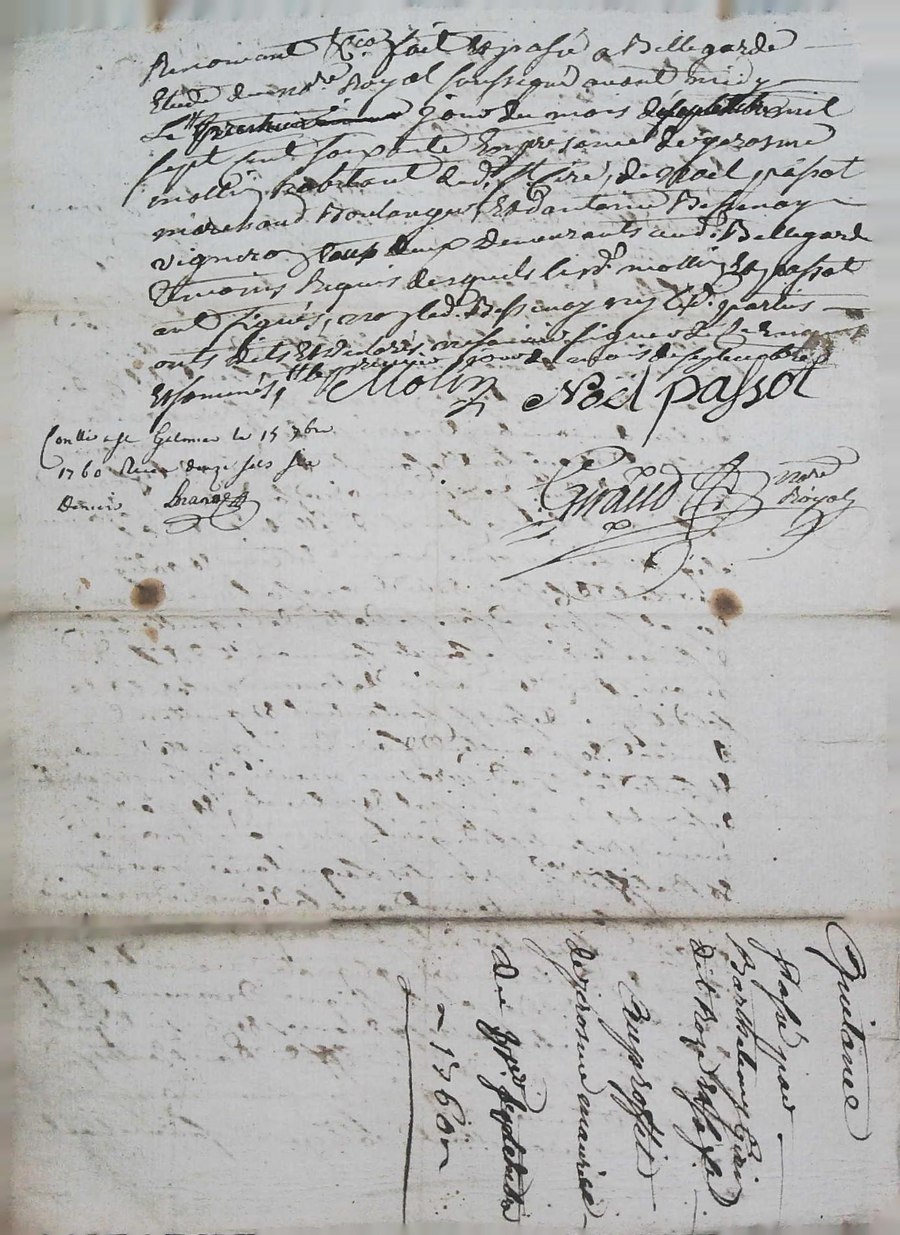 Renonçant &ca fait & passé a Bellegarde
Etude du nore Royal soussigné avant midy
Le jour du mois de septembre mil
sept cent soixante En presence de gerosme
mollin habitant de dt St Ciré, de noel passot
marchand Boulanger, Et d'antoine Bessenay
vigneron tous deux demeurants aud. Bellegarde
Temoins Requis desquels lesd. mollin & passot
ont signés, non led. Bessenay ny lesd. parties
onts dits Et declarés ne sçavoir signer de ce Enquis
Et sommés, le premier jour du mois de septembre
Molin Noël passot
Conttrolé a St Galmier le 15 7bre
1760 Reçu douze sols six
deniers
Giraud nore
Royal
Quitance
passé par
Barthelemy
dit
Au proffit
de gerosme
du 1er septembre
1760